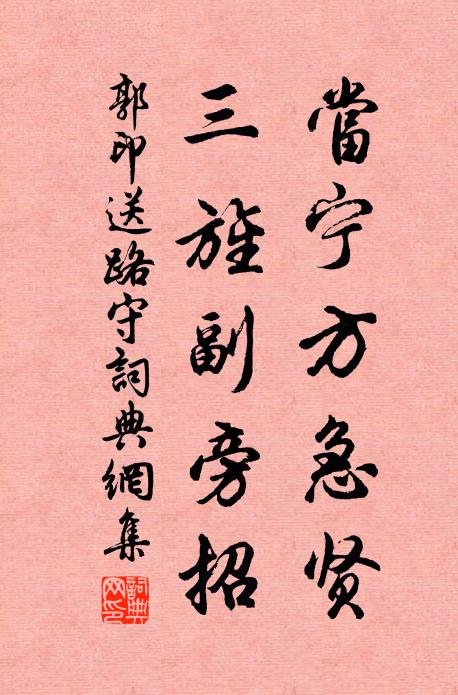 當宁方急贤
三旌副旁招
郭印送路守詞典網集
詞典网印